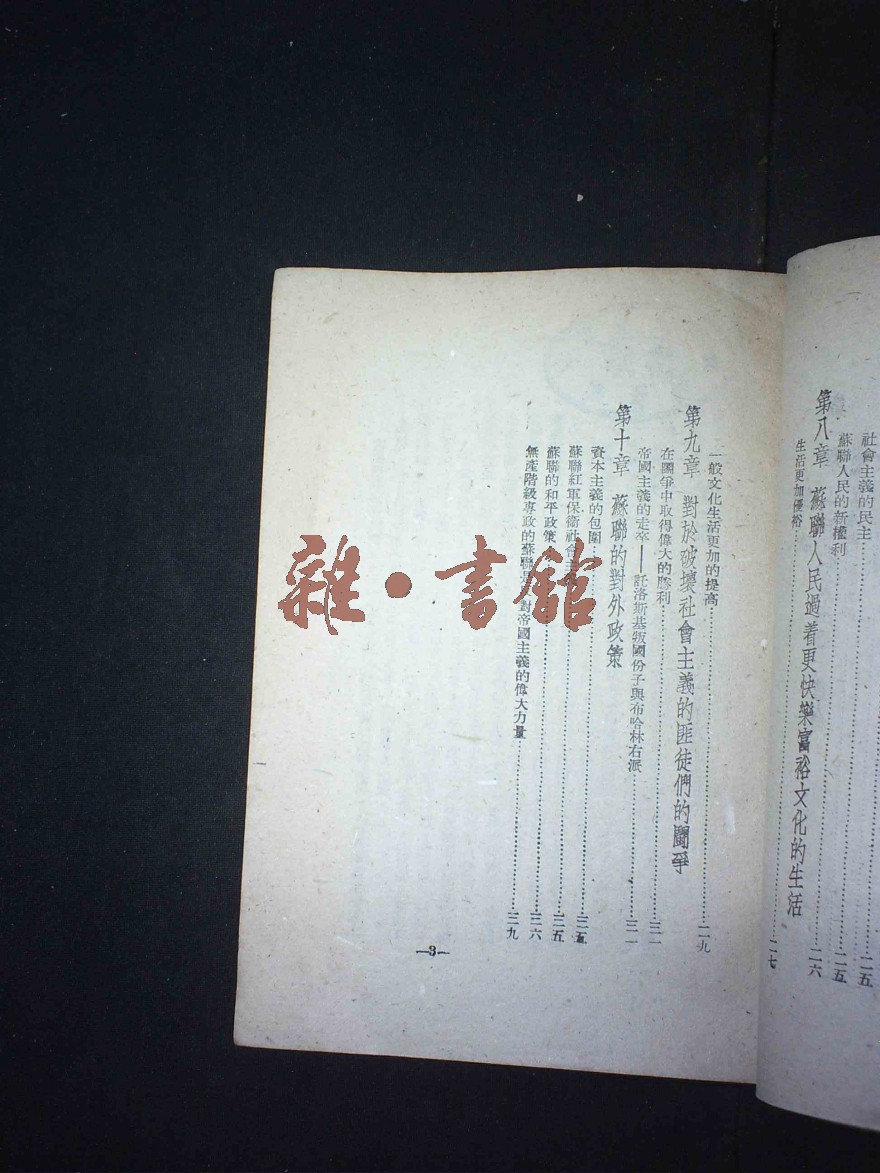 社會主義的民主⋯⋯二五
蘇聯人民的新權利⋯⋯二五
第八章 蘇聯人民過着更快樂富裕文化的生活⋯⋯二六
生活更加優裕⋯⋯二七
一般文化生活更加的提高⋯⋯二九
第九章 對於破壞社會主義的匪徒們的鬪爭
在鬪爭中取得偉大的勝利⋯⋯三一
帝國主義的走卒——託洛斯基叛國份子與布哈林右派⋯⋯三一
第十章 蘇聯的對外政策
資本主義的包圍⋯⋯三五
蘇聯紅軍保衛社會主義⋯⋯三五
蘇聯的和平政策⋯⋯三六
無產階級專政的蘇聯是 對帝國主義的偉大力量⋯⋯三九
—3—
雜·書館